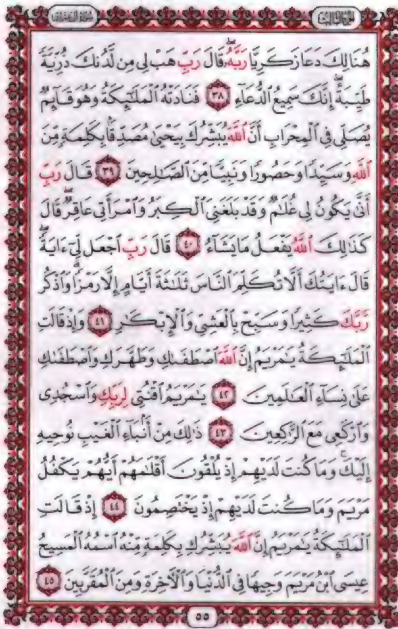 الجزء الثالث سورة آل عمران
هُنَالِكَ دَعَا زَكَرِيَّا رَبَّهُۥ ۖ قَالَ رَبِّ هَبْ لِى مِن لَّدُنكَ ذُرِّيَّةً
طَيِّبَةً ۖ إِنَّكَ سَمِيعُ ٱلدُّعَآءِ ٣٨ فَنَادَتْهُ ٱلْمَلَـٰٓئِكَةُ وَهُوَ قَآئِمٌ
يُصَلِّى فِى ٱلْمِحْرَابِ أَنَّ ٱللَّهَ يُبَشِّرُكَ بِيَحْيَىٰ مُصَدِّقًۢا بِكَلِمَةٍ مِّنَ
ٱللَّهِ وَسَيِّدًا وَحَصُورًا وَنَبِيًّا مِّنَ ٱلصَّـٰلِحِينَ ٣٩ قَالَ رَبِّ
أَنَّىٰ يَكُونُ لِى غُلَـٰمٌ وَقَدْ بَلَغَنِىَ ٱلْكِبَرُ وَٱمْرَأَتِى عَاقِرٌ ۖ قَالَ
كَذَٰلِكَ ٱللَّهُ يَفْعَلُ مَا يَشَآءُ ٤٠ قَالَ رَبِّ ٱجْعَل لِّىٓ ءَايَةً ۖ
قَالَ ءَايَتُكَ أَلَّا تُكَلِّمَ ٱلنَّاسَ ثَلَـٰثَةَ أَيَّامٍ إِلَّا رَمْزًا ۗ وَٱذْكُر
رَّبَّكَ كَثِيرًا وَسَبِّحْ بِٱلْعَشِىِّ وَٱلْإِبْكَـٰرِ ٤١ وَإِذْ قَالَتِ
ٱلْمَلَـٰٓئِكَةُ يَـٰمَرْيَمُ إِنَّ ٱللَّهَ ٱصْطَفَىٰكِ وَطَهَّرَكِ وَٱصْطَفَىٰكِ
عَلَىٰ نِسَآءِ ٱلْعَـٰلَمِينَ ٤٢ يَـٰمَرْيَمُ ٱقْنُتِى لِرَبِّكِ وَٱسْجُدِى
وَٱرْكَعِى مَعَ ٱلرَّٰكِعِينَ ٤٣ ذَٰلِكَ مِنْ أَنۢبَآءِ ٱلْغَيْبِ نُوحِيهِ
إِلَيْكَ ۚ وَمَا كُنتَ لَدَيْهِمْ إِذْ يُلْقُونَ أَقْلَـٰمَهُمْ أَيُّهُمْ يَكْفُلُ
مَرْيَمَ وَمَا كُنتَ لَدَيْهِمْ إِذْ يَخْتَصِمُونَ ٤٤ إِذْ قَالَتِ
ٱلْمَلَـٰٓئِكَةُ يَـٰمَرْيَمُ إِنَّ ٱللَّهَ يُبَشِّرُكِ بِكَلِمَةٍ مِّنْهُ ٱسْمُهُ ٱلْمَسِيحُ
عِيسَى ٱبْنُ مَرْيَمَ وَجِيهًا فِى ٱلدُّنْيَا وَٱلْـَٔاخِرَةِ وَمِنَ ٱلْمُقَرَّبِينَ ٤٥
٥٥